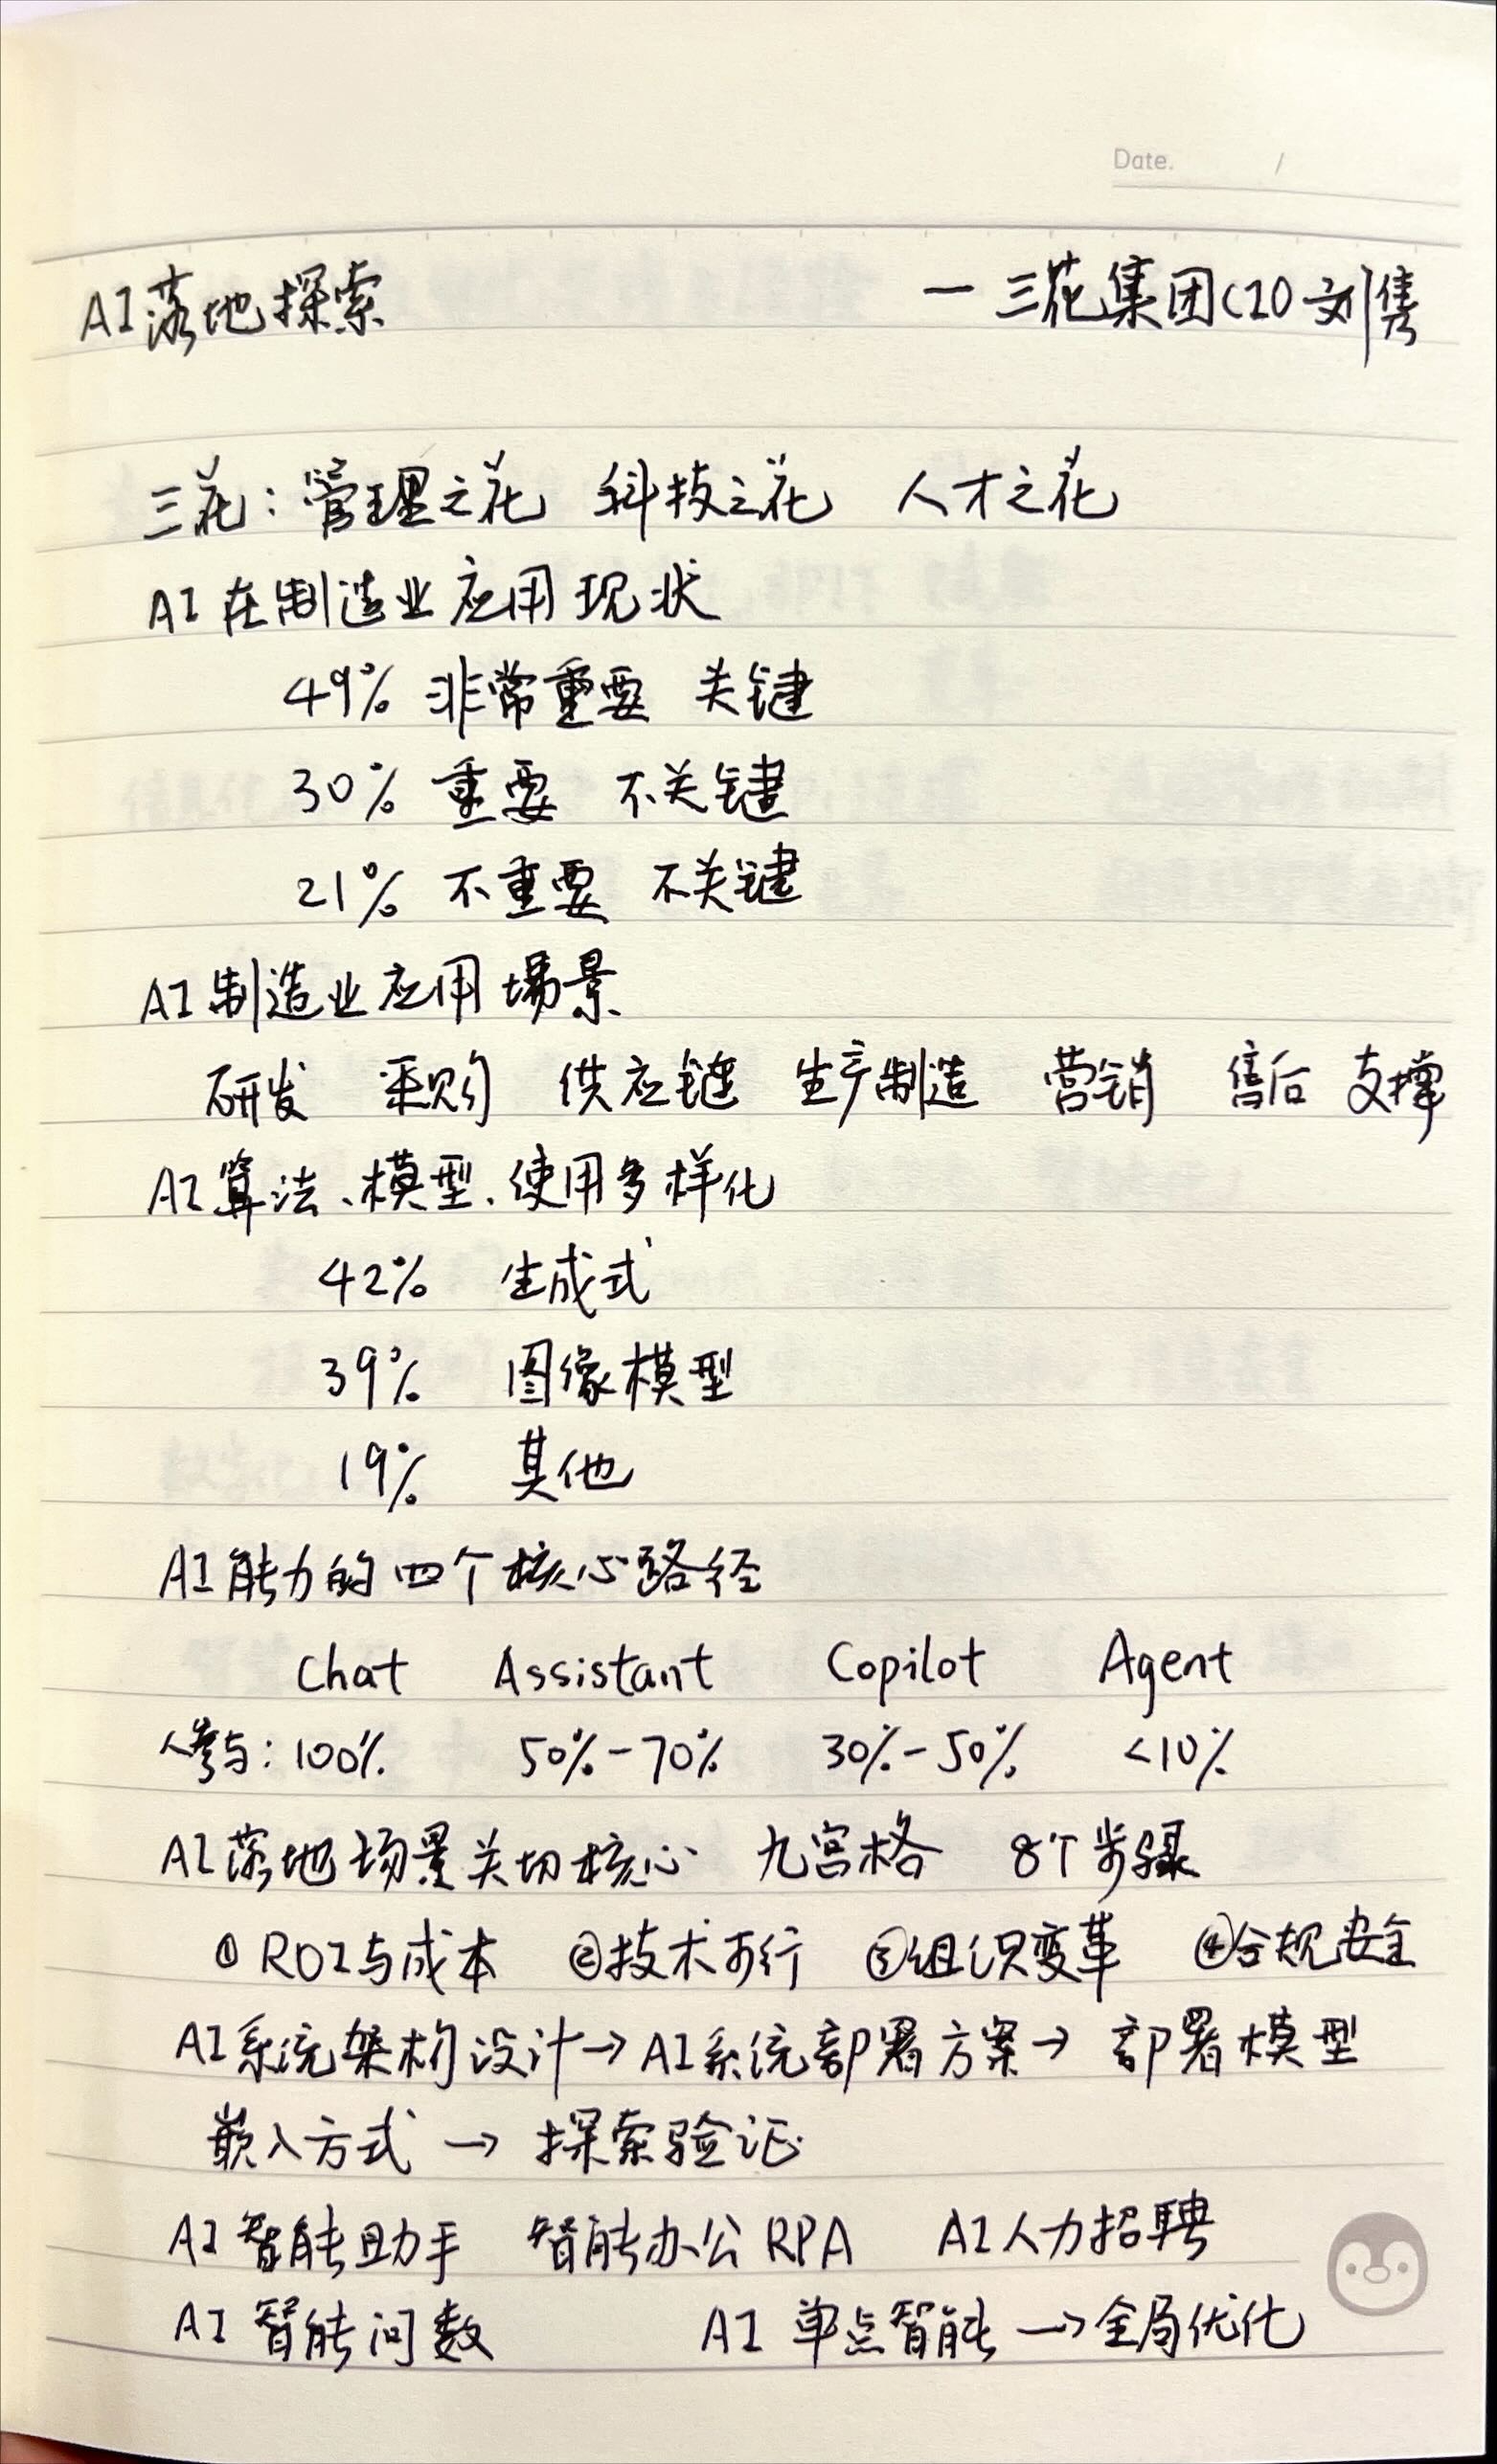 Date. /
AI落地探索 一 三花集团CIO 刘隽
三花：管理之花 科技之花 人才之花
AI在制造业应用现状
49% 非常重要 关键
30% 重要 不关键
21% 不重要 不关键
AI制造业应用场景
研发 采购 供应链 生产制造 营销 售后 支撑
AI算法、模型、使用多样化
42% 生成式
39% 图像模型
19% 其他
AI能力的四个核心路径
Chat Assistant Copilot Agent
人参与：100% 50%-70% 30%-50% <10%
AI落地场景关切核心 九宫格 8个步骤
①ROI与成本 ②技术可行 ③组识变革 ④合规安全
AI系统架构设计→AI系统部署方案→ 部署模型
嵌入方式 → 探索验证
AI智能助手 智能办公RPA AI人力招聘
AI智能问数 AI 单点智能→全局优化